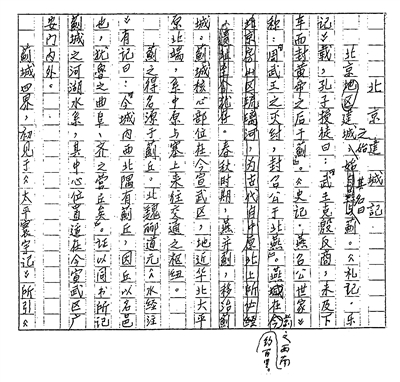 北京建城記
北京地区建城之始,其名曰蓟。《礼记·乐
记》载,孔子授徒曰:“武王克殷反商,未及下
车而封黄帝之后于蓟。”《史记·燕召公世家》
称:“周武王之灭纣,封召公于北燕。”燕城在今
蓟之西南
约百里。
琉璃河,为古代自中原北上所必经
春秋时期,燕并蓟,移治蓟
城。蓟城核心部位在今宣武区,地近华北大平
原北端,系中原与塞上来往交通之枢纽。
蓟之得名源于蓟丘。北魏郦道元《水经注》
有记曰:“今城内西北隅有蓟丘,因丘以名邑
也,犹鲁之曲阜,齐之营丘矣。”证以同书所记
蓟城之河湖水系,其中心位置宜在今宣武区广
安门内外。
蓟城四界,初见于《太平寰宇记》所引《